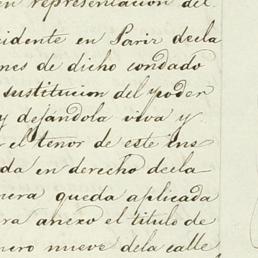 en representacion del
cidente en Paris decla
ones de dicho condado
sustitucion del poder
y dejándola viva y
r el tenor de este ins
da en derecho decla
nera queda aplicada
ra anexo el titulo de
nero nueve dela calle